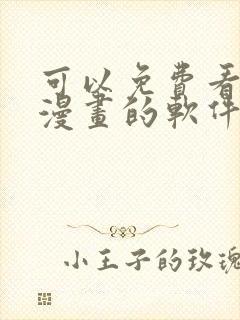 可以免費看
漫畫的軟件
小王子的玫瑰